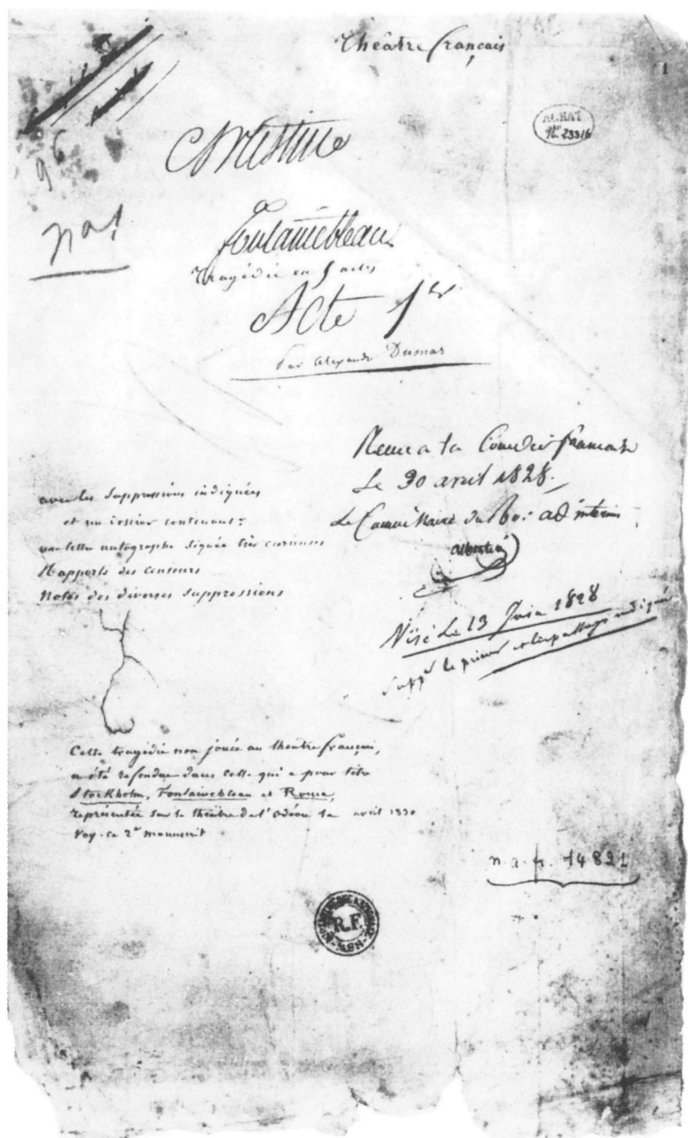 Théâtre français
1
ACHAT
No. 23316
96
no 1
Christine
à
Fontainebleau
tragédie en 5 actes
Acte 1er
Par Alexandre Dumas
Remis a la Comedie francaise
Le 30 avril 1828.
Le Commissaire du Roi ad interim
Albertin
avec les suppressions indiquées
et un dossier contenant:
une lettre autographe signée très curieuse
Rapports des censeurs
Notes des diverses suppressions
Visé Le 13 Juin 1828
Cette tragédie non jouée au théatre français,
a été refondue dans celle qui a pour titre
Stockholm, Fontainebleau et Rome,
représentée sur le théâtre de l'Odéon le avril 1830
Voy. ce 2e manuscrit
n. a. fr. 14821
R.F.